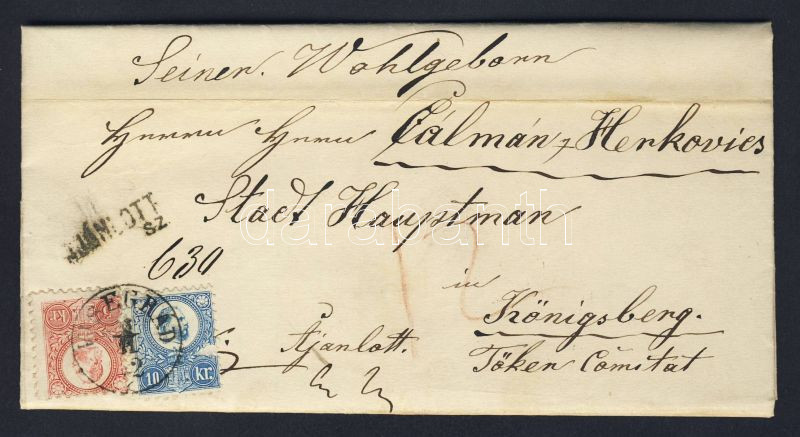 Seiner. Wohlgeborn
Herrn Herrn Cálmán, Herkovics
Stadt Hauptman
AJÁNLOTT
SZ.
630
in
Königsberg.
Ajanlott.
Töken Comitat
10 Kr.
Kr.
darabanth